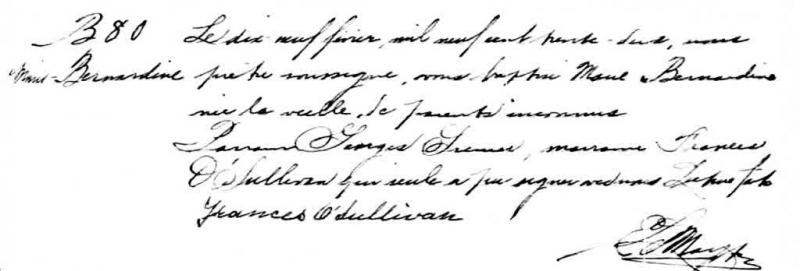 B 80
Marie-Bernardine
Le dix-neuf février, mil neuf cent trente-deux, nous
prêtre soussigné, avons baptisé Marie Bernardine
née la veille, de parents inconnus
Parrain Georges, marraine Frances
O'Sullivan qui seule a pu signer avec nous. Lecture faite
Frances O'Sullivan